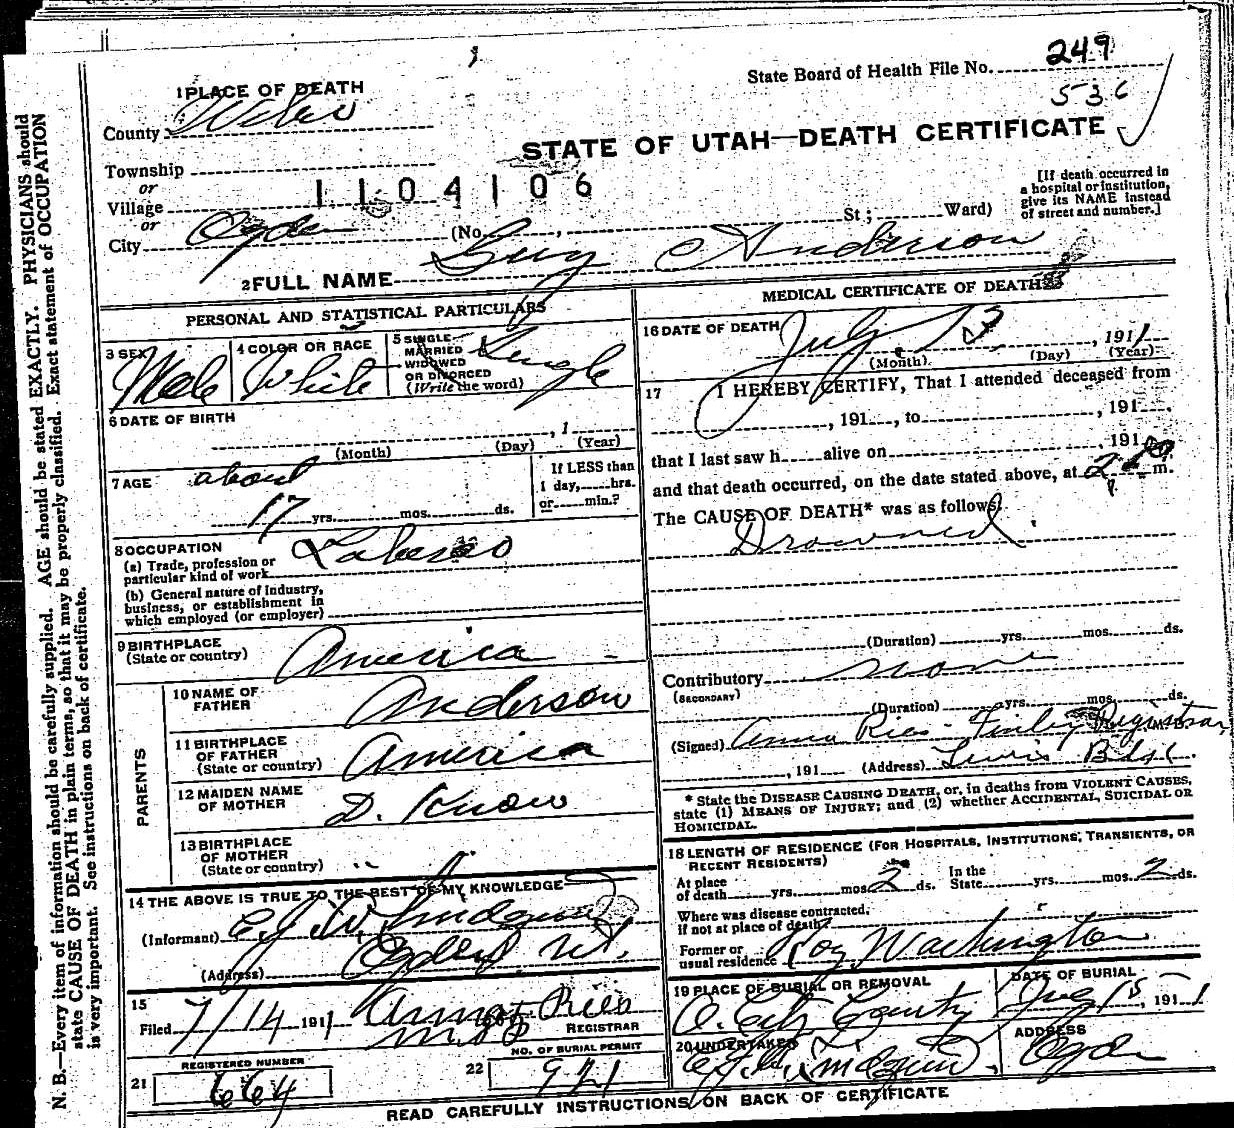 State Board of Health File No. 249
536
1 PLACE OF DEATH
County Weber
STATE OF UTAH—DEATH CERTIFICATE
Township
or
Village
1104106
or
City Ogden (No. , St; Ward)
[If death occurred in a hospital or institution, give its NAME instead of street and number.]
2 FULL NAME Guy Anderson
PERSONAL AND STATISTICAL PARTICULARS
3 SEX Male
4 COLOR OR RACE White
5 SINGLE MARRIED WIDOWED OR DIVORCED (Write the word) Single
6 DATE OF BIRTH
, 1
(Month) (Day) (Year)
7 AGE about
17 yrs. mos. ds.
If LESS than 1 day, hrs. or min.?
8 OCCUPATION
(a) Trade, profession or particular kind of work Laborer
(b) General nature of industry, business, or establishment in which employed (or employer)
9 BIRTHPLACE (State or country) America
PARENTS
10 NAME OF FATHER Anderson
11 BIRTHPLACE OF FATHER (State or country) America
12 MAIDEN NAME OF MOTHER D. Know
13 BIRTHPLACE OF MOTHER (State or country) "
14 THE ABOVE IS TRUE TO THE BEST OF MY KNOWLEDGE
(Informant)
(Address) Ogden, Ut.
15
Filed 7/14 1911 Anna Ries
REGISTRAR
REGISTERED NUMBER
21 664
NO. OF BURIAL PERMIT
22 921
MEDICAL CERTIFICATE OF DEATH
16 DATE OF DEATH July 13, 1911
(Month) (Day) (Year)
17 I HEREBY CERTIFY, That I attended deceased from
, 191 , to , 191 .
that I last saw h alive on , 191
and that death occurred, on the date stated above, at 2 m.
The CAUSE OF DEATH* was as follows:
Drowned
(Duration) yrs. mos. ds.
Contributory none
(SECONDARY)
(Duration) yrs. mos. ds.
(Signed) Anna Ries Finley Registrar
, 191 (Address) Lewis Bldg.
* State the DISEASE CAUSING DEATH, or, in deaths from VIOLENT CAUSES, state (1) MEANS OF INJURY; and (2) whether ACCIDENTAL, SUICIDAL OR HOMICIDAL.
18 LENGTH OF RESIDENCE (FOR HOSPITALS, INSTITUTIONS, TRANSIENTS, OR RECENT RESIDENTS)
At place of death yrs. mos. 2 ds. In the State yrs. mos. 2 ds.
Where was disease contracted, if not at place of death?
Former or usual residence Roy Washington
19 PLACE OF BURIAL OR REMOVAL
O. City County
DATE OF BURIAL
July 15, 1911
20 UNDERTAKER
ADDRESS
Ogden
READ CAREFULLY INSTRUCTIONS ON BACK OF CERTIFICATE
N. B.—Every item of information should be carefully supplied. AGE should be stated EXACTLY. PHYSICIANS should
state CAUSE OF DEATH in plain terms, so that it may be properly classified. Exact statement of OCCUPATION
is very important. See instructions on back of certificate.